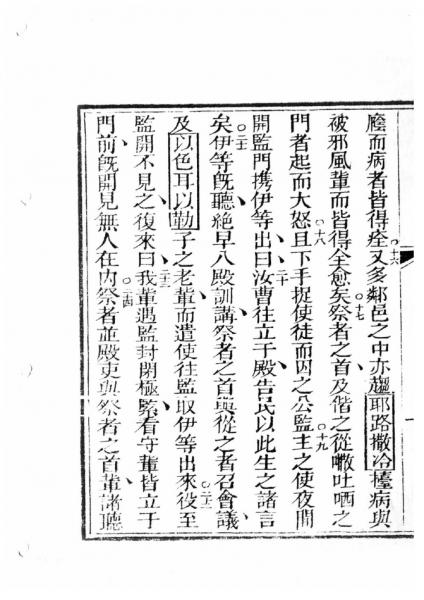 廕而病者皆得痊○十六又多鄰邑之中亦趨耶路撒冷擡病與
被邪風輩而皆得全愈矣○十七祭者之首及偕之從嗽吐哂之
門者起而大怒○十八且下手捉使徒而囚之○十九公監主之使夜間
開監門携伊等出曰○二十汝曹往立于殿告民以此生之諸言
矣○二一伊等既聽絕早入殿訓講祭者之首與從之者召會議
及以色耳以勒子之老輩而遣使往監取伊等出來○二二役至
監開不見之復來曰○二三我輩遇監封閉極緊看守輩皆立于
門前既開見無人在內○二四祭者並殿吏與祭者之首輩諸聽